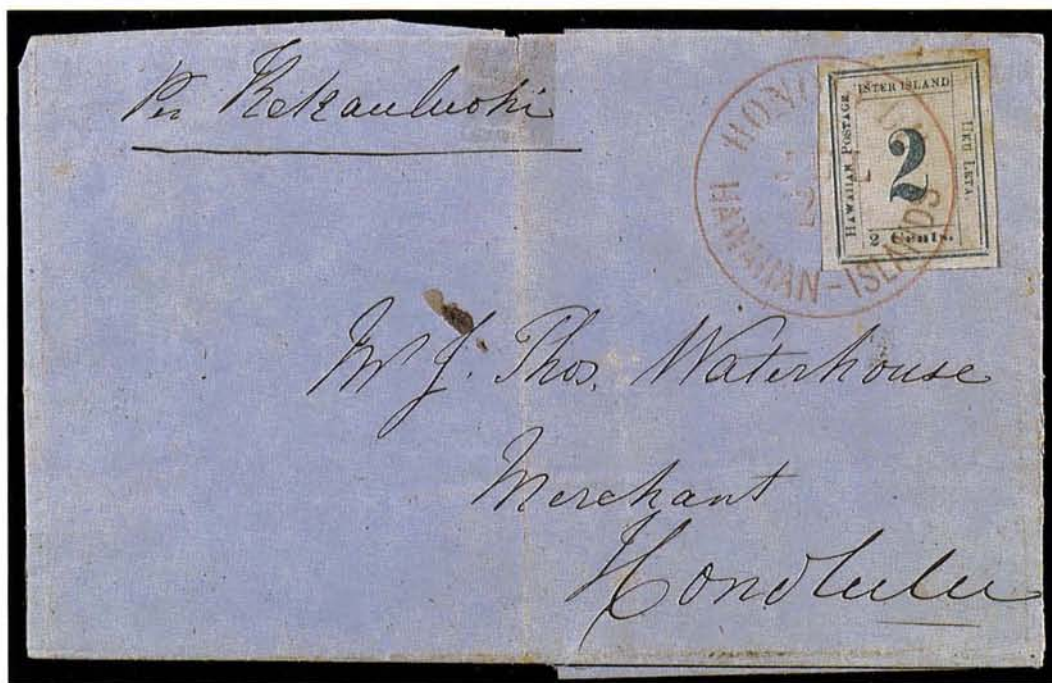 Per Kekauluohi
HONOLULU
HAWAIIAN-ISLANDS
HAWAIIAN POSTAGE
ISTER ISLAND
UKU LETA.
2
2 Cents.
Mr J. Thos. Waterhouse
Merchant
Honolulu